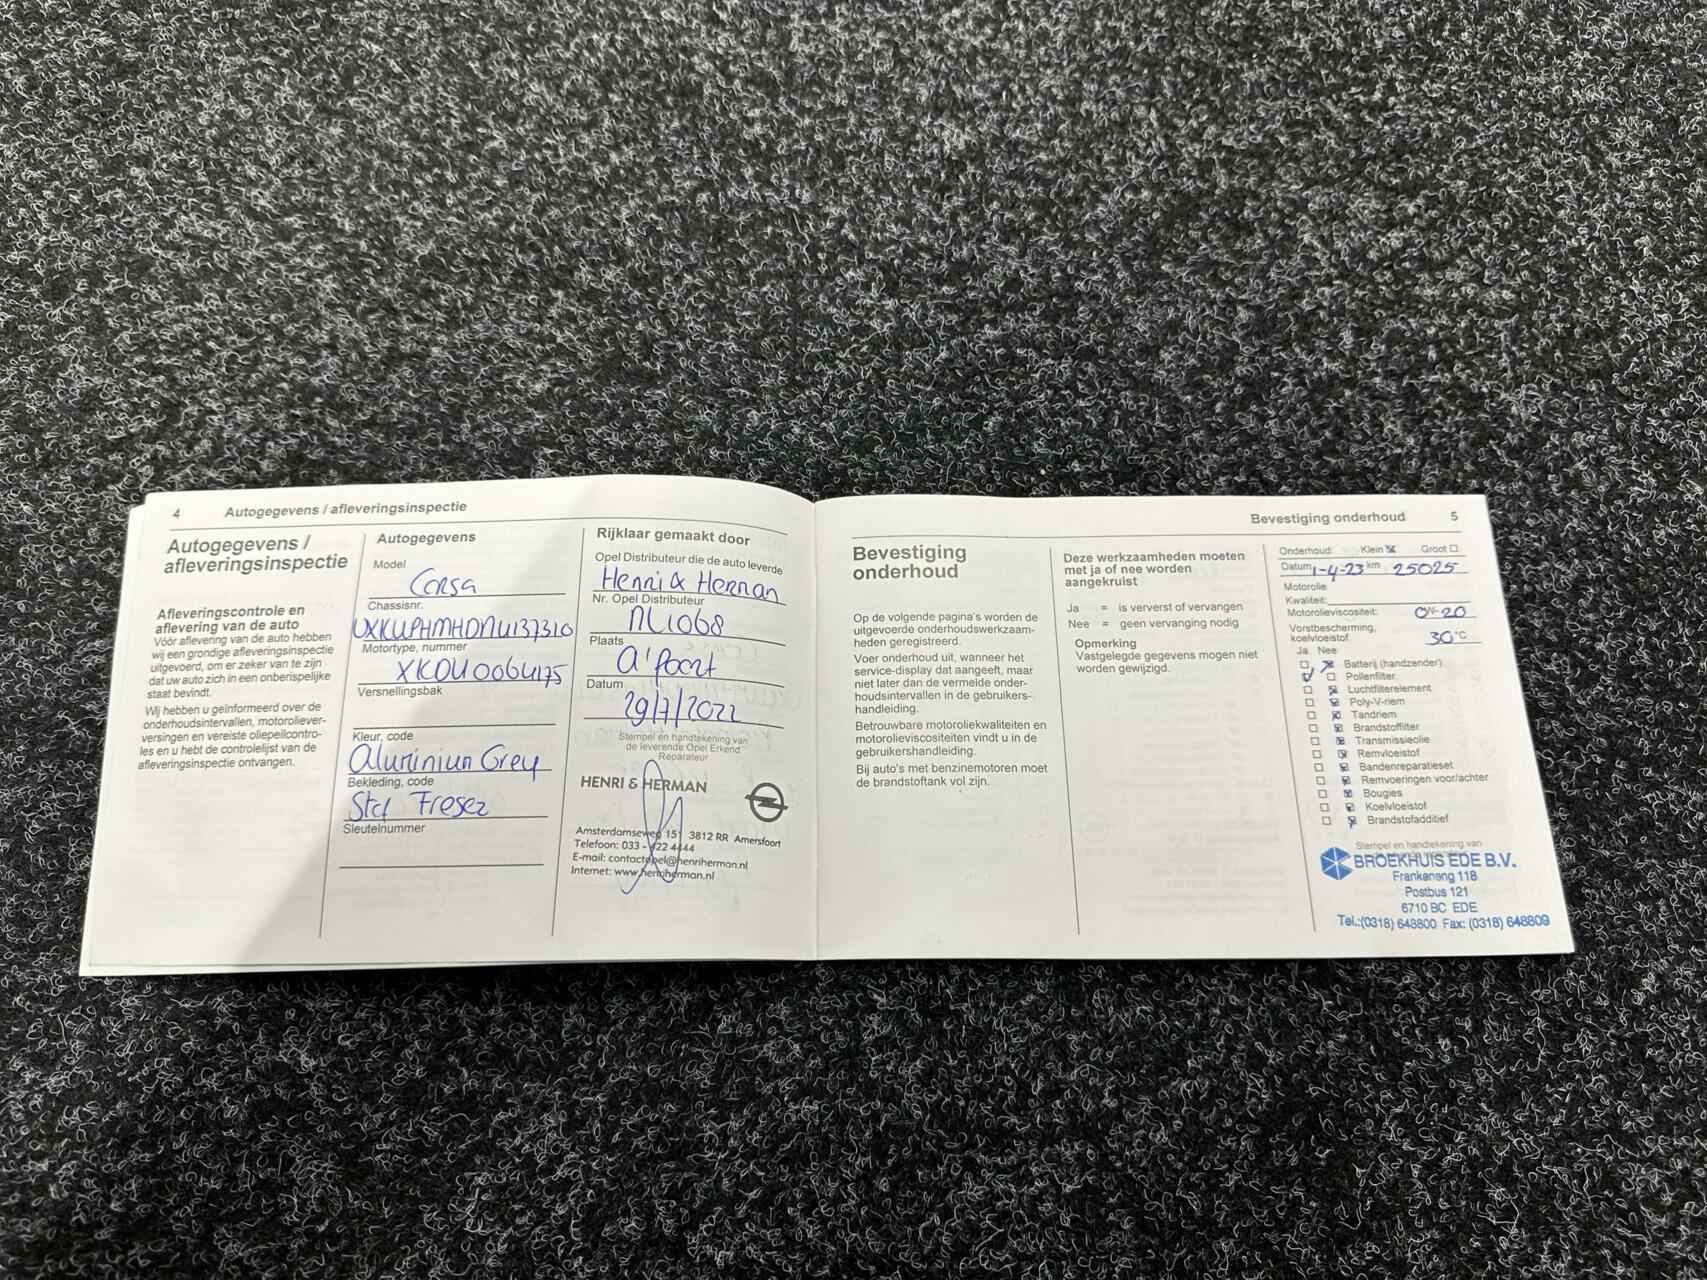 4 Autogegevens / afleveringsinspectie
Autogegevens /
afleveringsinspectie
Afleveringscontrole en
aflevering van de auto
Vóór aflevering van de auto hebben
wij een grondige afleveringsinspectie
uitgevoerd, om er zeker van te zijn
dat uw auto zich in een onberispelijke
staat bevindt.
Wij hebben u geïnformeerd over de
onderhoudsintervallen, motoroliever-
versingen en vereiste oliepeilcontro-
les en u hebt de controlelijst van de
afleveringsinspectie ontvangen.
Autogegevens
Model
Corsa
Chassisnr.
Motortype, nummer
Versnellingsbak
Kleur, code
Aluminium Grey
Bekleding, code
Sleutelnummer
Rijklaar gemaakt door
Opel Distributeur die de auto leverde
Henri & Herman
Nr. Opel Distributeur
NL1068
Plaats
A'Poort
Datum
29/7/2022
Stempel en handtekening van
de leverende Opel Erkend
Reparateur
HENRI & HERMAN
Amsterdamseweg 151 3812 RR Amersfoort
Telefoon: 033 - 422 4444
E-mail: contactopel@henriherman.nl
Internet: www.henriherman.nl
Bevestiging onderhoud 5
Bevestiging
onderhoud
Op de volgende pagina's worden de
uitgevoerde onderhoudswerkzaam-
heden geregistreerd.
Voer onderhoud uit, wanneer het
service-display dat aangeeft, maar
niet later dan de vermelde onder-
houdsintervallen in de gebruikers-
handleiding.
Betrouwbare motoroliekwaliteiten en
motorolieviscositeiten vindt u in de
gebruikershandleiding.
Bij auto's met benzinemotoren moet
de brandstoftank vol zijn.
Deze werkzaamheden moeten
met ja of nee worden
aangekruist
Ja = is ververst of vervangen
Nee = geen vervanging nodig
Opmerking
Vastgelegde gegevens mogen niet
worden gewijzigd.
Onderhoud: Klein Groot
Datum 1-4-23 km 25025
Motorolie
Kwaliteit:
Motorolieviscositeit: 0W-20
Vorstbescherming,
koelvloeistof 30 °C
Ja Nee
Batterij (handzender)
Pollenfilter
Luchtfilterelement
Poly-V-riem
Tandriem
Brandstoffilter
Transmissieolie
Remvloeistof
Bandenreparatieset
Remvoeringen voor/achter
Bougies
Koelvloeistof
Brandstofadditief
Stempel en handtekening van
BROEKHUIS EDE B.V.
Frankeneng 118
Postbus 121
6710 BC EDE
Tel.:(0318) 648800 Fax: (0318) 648809